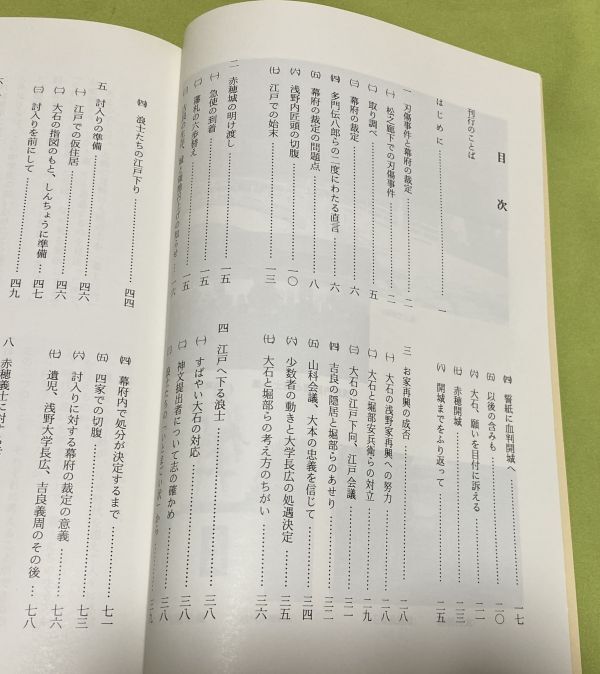 目次
刊行のことば
はじめに……一
一 刃傷事件と幕府の裁定……二
㈠ 松之廊下での刃傷事件……二
㈡ 取り調べ……五
㈢ 幕府の裁定……六
㈣ 多門伝八郎らの二度にわたる直言……六
㈤ 幕府の裁定の問題点……八
㈥ 浅野内匠頭の切腹……一〇
㈦ 江戸での始末……一三
二 赤穂城の明け渡し……一五
㈠ 急使の到着……一五
㈡ 藩札の六歩替え……一五
の知らせ……一六
㈣ 誓紙に血判開城へ……一七
㈤ 以後の含みも……二〇
㈥ 大石、願いを目付に訴える……二一
㈦ 赤穂開城……二三
㈧ 開城までをふり返って……二五
三 お家再興の成否……二八
㈠ 大石の浅野家再興への努力……二八
㈡ 大石と堀部安兵衛らの対立……二九
㈢ 大石の江戸下向、江戸会議……三一
㈣ 吉良の隠居と堀部らのあせり……三二
㈤ 山科会議、大本の忠義を信じて……三四
㈥ 少数者の動きと大学長広の処遇決定……三五
㈦ 大石と堀部らの考え方のちがい……三六
四 江戸へ下る浪士……三八
㈠ すばやい大石の対応……三八
㈡ 神文提出者について志の確かめ……三八
……三九
㈣ 浪士たちの江戸下り……四四
五 討入りの準備……四六
㈠ 江戸での仮住居……四六
㈡ 大石の指図のもと、しんちょうに準備…四七
㈢ 討入りを前にして……四九
㈣ 幕府内で処分が決定するまで……七一
㈤ 四家での切腹……七三
㈥ 討入りに対する幕府の裁定の意義……七六
㈦ 遺児、浅野大学長広、吉良義周のその後……七八
八 赤穂義士に対する